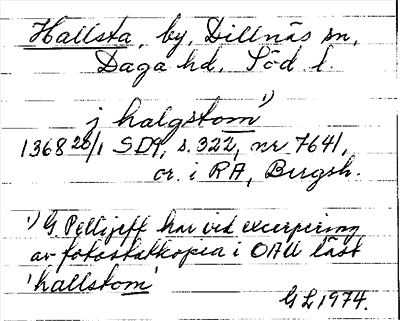 Hallsta, by, Dillnäs sn,
Daga hd, Söd. l.
j halgstom¹)
1368 28/1 SD9, s. 322, nr 7641,
or. i RA, Bergsh.
¹) G Pellijeff har vid excerpering
av fotostatkopia i OAU läst
'hallstom'
GL 1974.